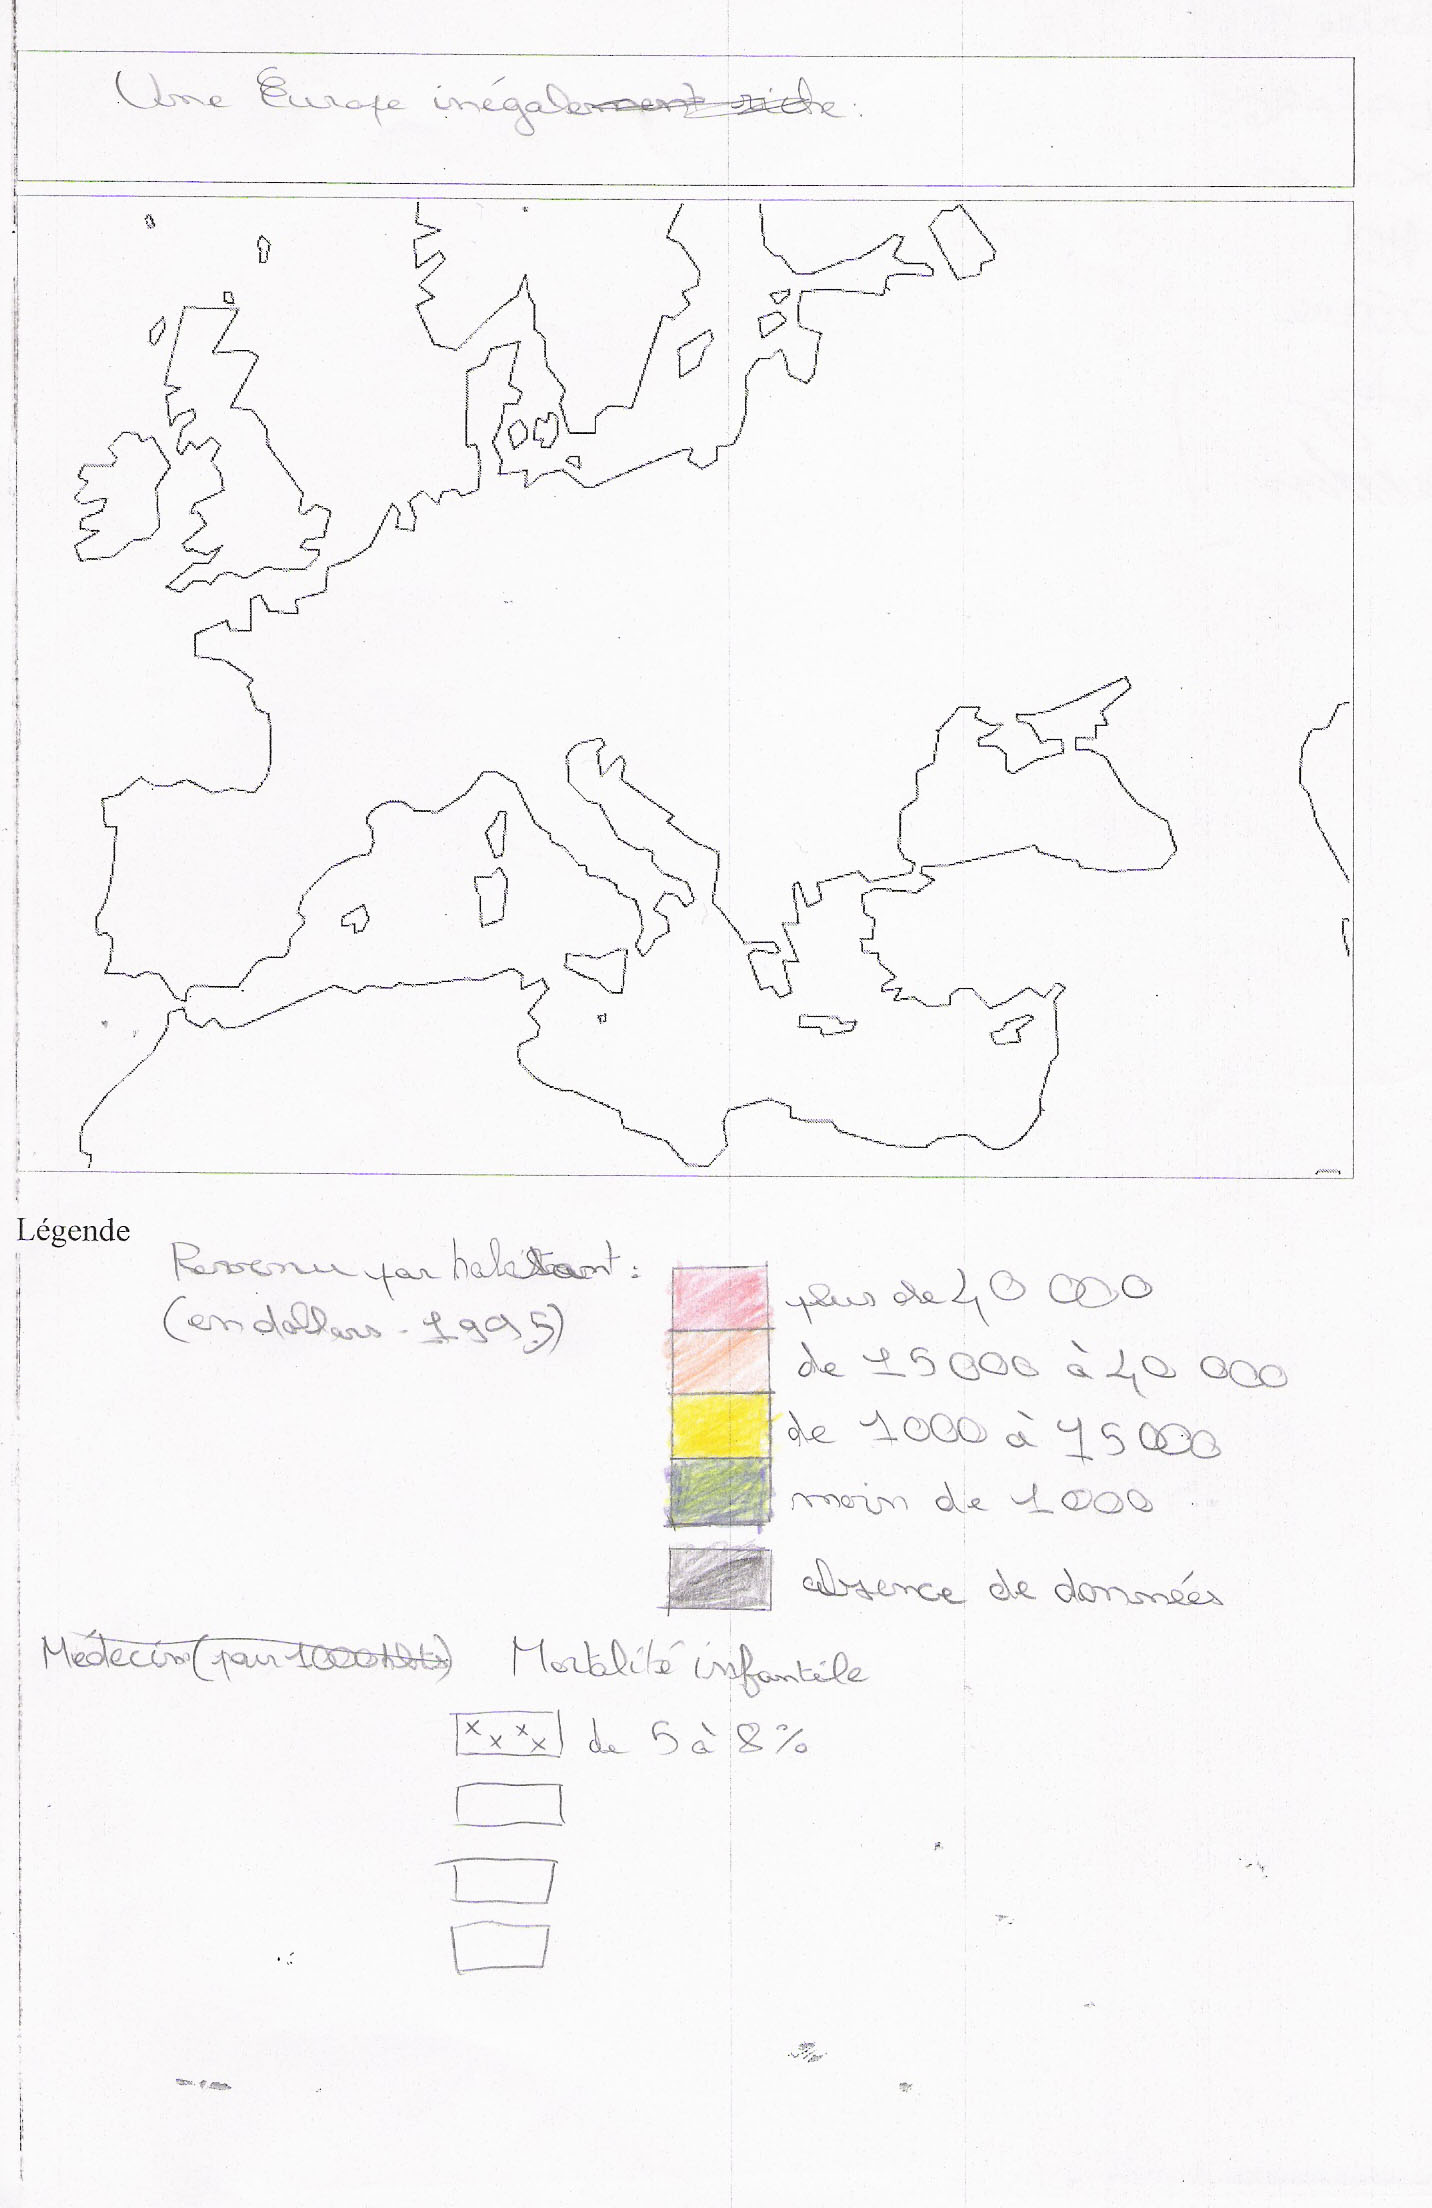 Une Europe inégalement riche.
Légende
Revenu par habitant :
(en dollars - 1995)
plus de 40 000
de 15 000 à 40 000
de 1000 à 15 000
moin de 1000
absence de données
Médecin (pour 1000 hbts) Mortalité infantile
de 5 à 8 %